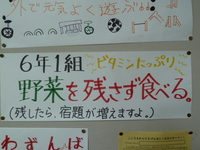 外で元気よく遊ぶ
6年1組
ビタミンたっぷり
野菜を残さず食べる。
(残したら、宿題が増えますよ。)
わずんは